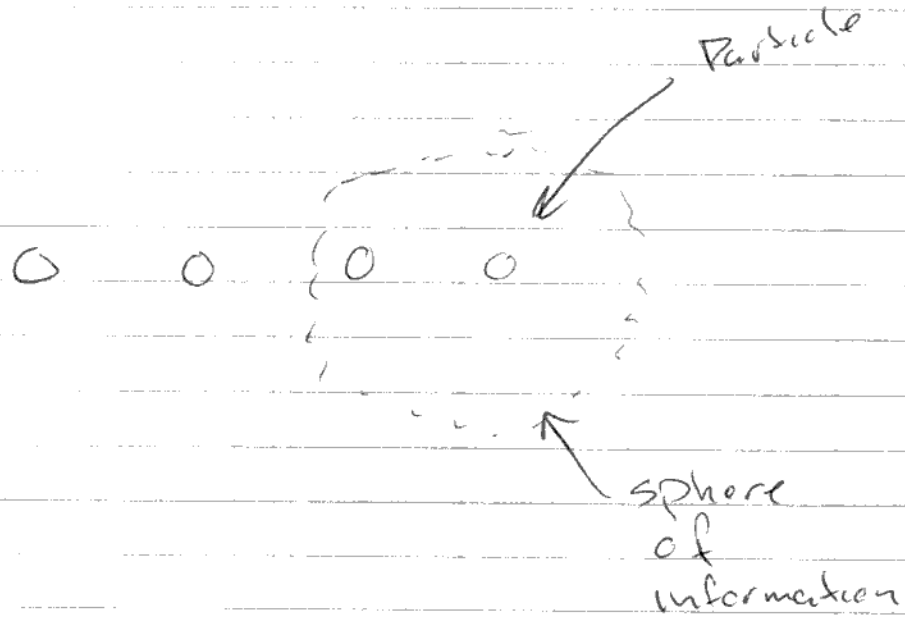 Particle
sphere
of
information